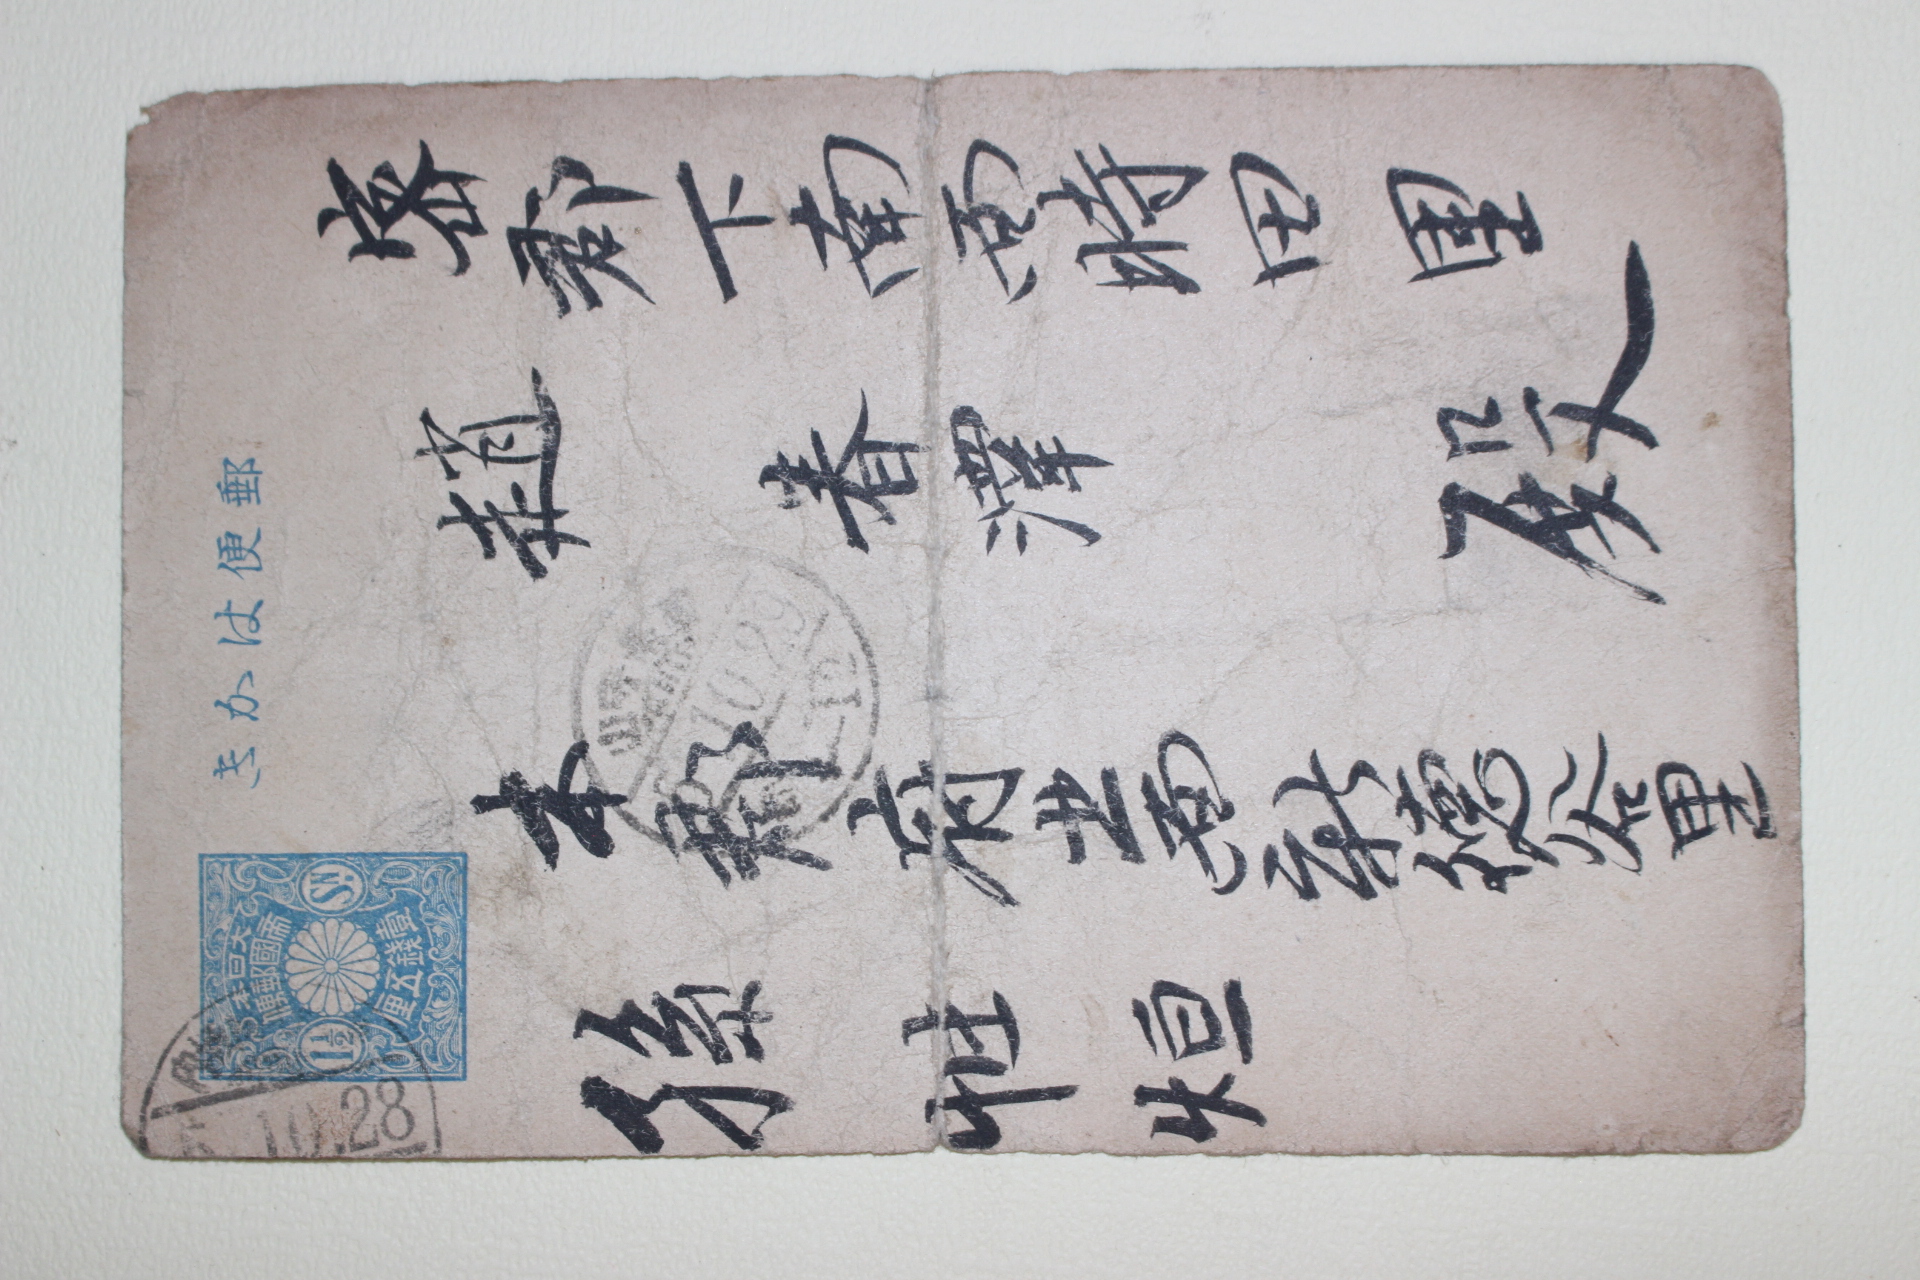 郵便はかき
大日本
帝國郵便
1½ SN.
壹錢五厘
10.28
密郡下南面時田里
趙春澤殿
本郡府北面新德谷里
孫
10
12